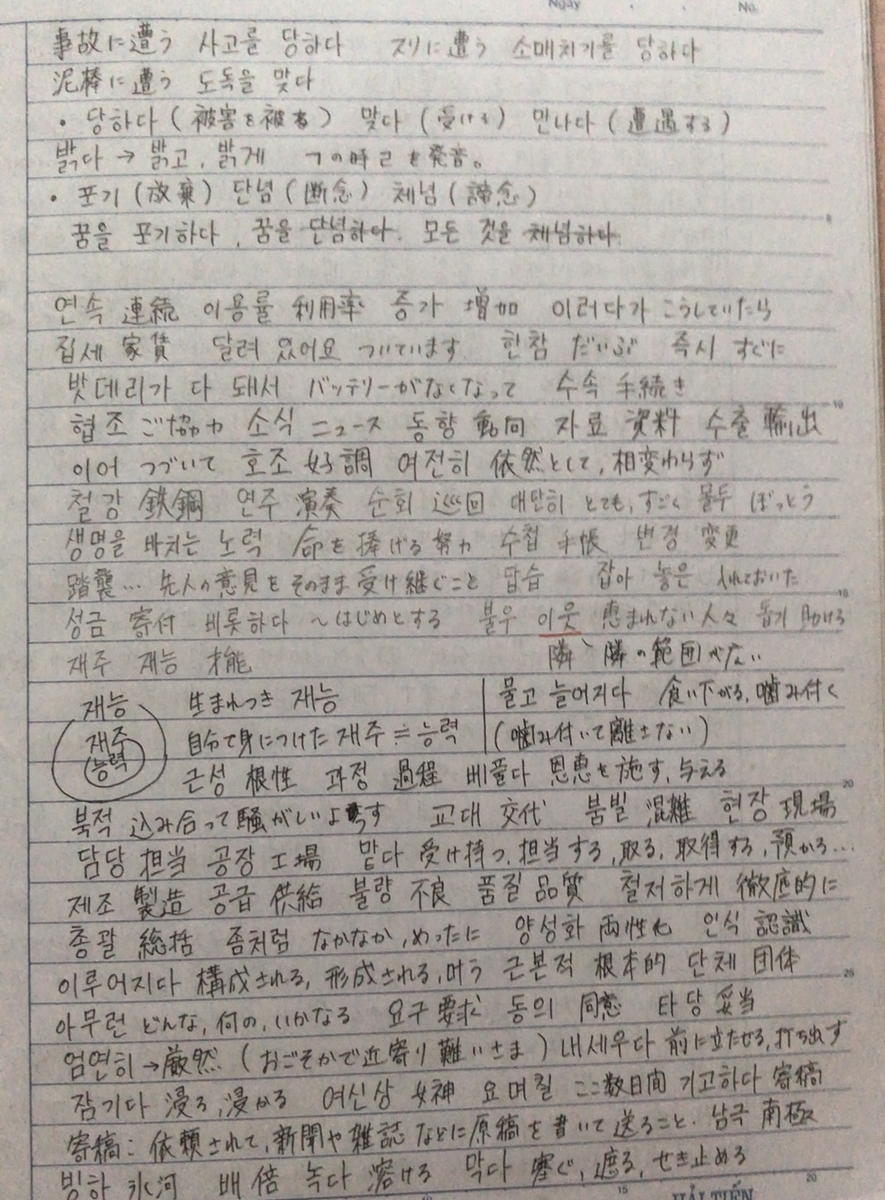 Ngày . . No.
事故に遭う 사고를 당하다 スリに遭う 소매치기를 당하다
泥棒に遭う 도둑을 맞다
・당하다 (被害を被る) 맞다 (受ける) 만나다 (遭遇する)
밝다 → 밝고, 밝게 ㄱの時ㄹを発音。
・포기 (放棄) 단념 (断念) 체념 (諦念)
꿈을 포기하다, 꿈을 단념하다. 모든 것을 체념하다.
5
연속 連続 이용률 利用率 증가 増加 이러다가 こうしていたら
집세 家賃 달려 있어요 ついています 한참 だいぶ 즉시 すぐに
밧데리가 다 돼서 バッテリーがなくなって 수속 手続き
10
협조 ご協力 소식 ニュース 동향 動向 자료 資料 수출 輸出
이어 つづいて 호조 好調 여전히 依然として, 相変わらず
철강 鉄鋼 연주 演奏 순회 巡回 대단히 とても, すごく 몰두 ぼっとう
생명을 바치는 노력 命を捧げる努力 수첩 手帳 변경 変更
踏襲… 先人の意見をそのまま受け継ぐこと 답습 잡아 놓은 入れておいた
15
성금 寄付 비롯하다 ~はじめとする 불우 이웃 恵まれない人々 돕기 助ける
재주 재능 才能 隣 隣の範囲がない
재능 生まれつき 재능 물고 늘어지다 食い下がる, 噛み付く
재주 自分で身につけた 재주 ≒ 능력 (噛み付いて離さない)
능력 근성 根性 과정 過程 베풀다 恩恵を施す, 与える
20
북적 込み合って騒がしいようす 교대 交代 붐빌 混雑 현장 現場
담당 担当 공장 工場 맡다 受け持つ, 担当する, 取る, 取得する, 預かる…
제조 製造 공급 供給 불량 不良 품질 品質 철저하게 徹底的に
총괄 総括 좀처럼 なかなか, めったに 양성화 両性化 인식 認識
이루어지다 構成される, 形成される, 叶う 근본적 根本的 단체 団体
25
아무런 どんな, 何の, いかなる 요구 要求 동의 同意 타당 妥当
엄연히 → 厳然 (おごそかで近寄り難いさま) 내세우다 前に立たせる, 打ち出す
잠기다 浸る, 浸かる 여신상 女神 요며칠 ここ数日間 기고하다 寄稿
寄稿: 依頼されて, 新聞や雑誌などに原稿を書いて送ること. 남극 南極
빙하 氷河 배 倍 녹다 溶ける 막다 塞ぐ, 遮る, せき止める
10 15 HẢI TIẾN 20